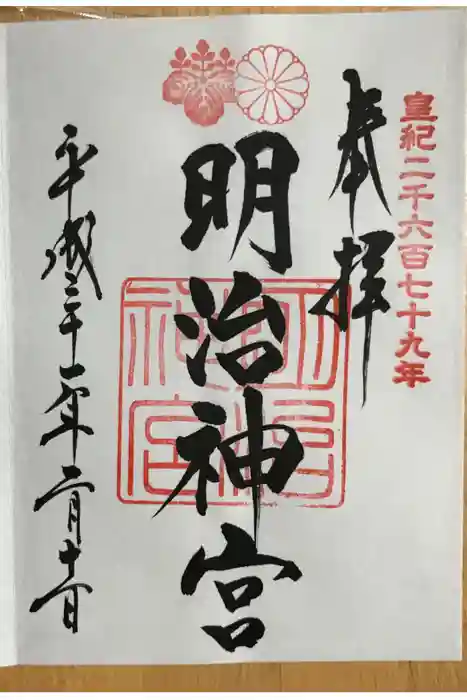 皇紀二千六百七十九年
奉拝
明治神宮
明治
神宮
平成三十一年二月十一日